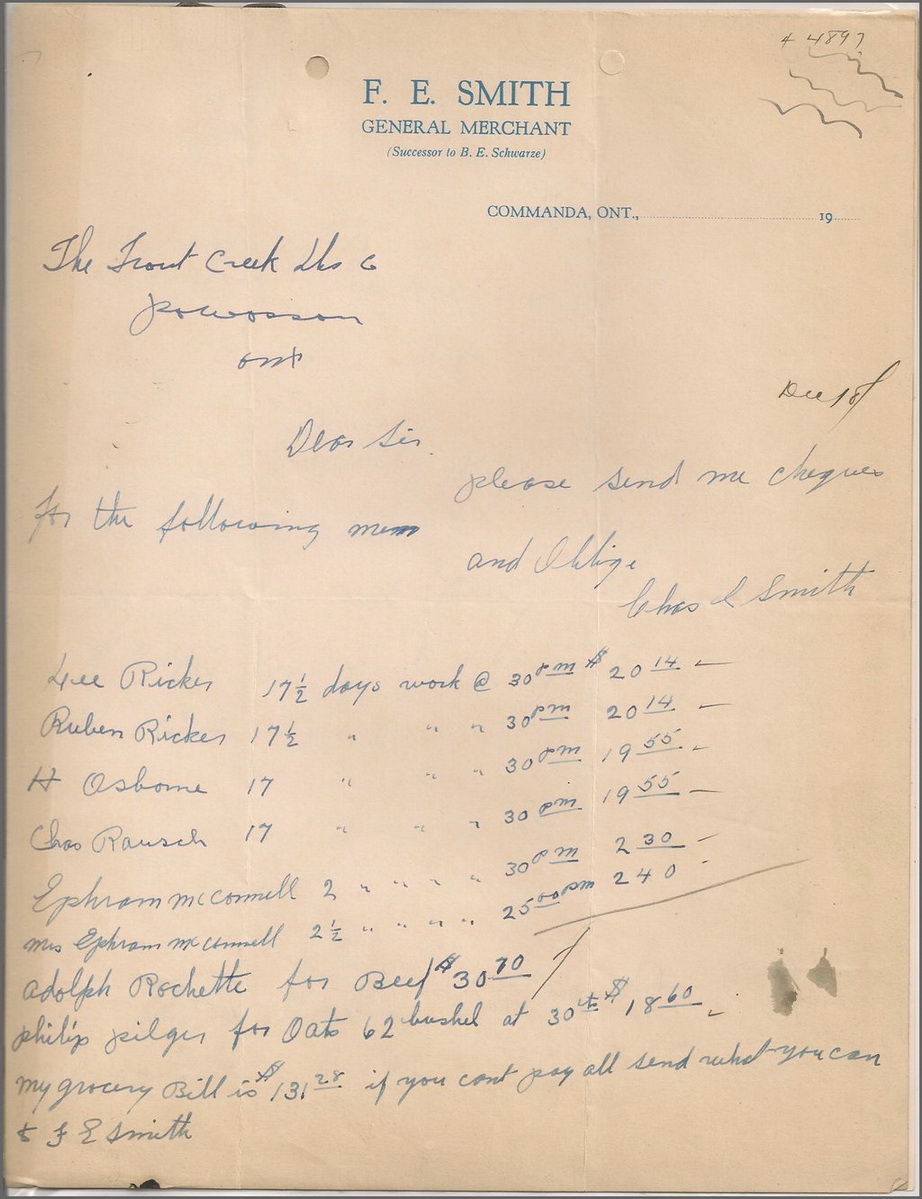 + 4897
F. E. SMITH
GENERAL MERCHANT
(Successor to B. E. Schwarze)
COMMANDA, ONT., 19
The Trout Creek Lbs Co
powosson
ont
Dec 18
Dear Sir.
please send me cheques
for the following men
and Oblige
Chas Smith
Lee Ricker 17½ days work @ 30 pm $ 20 14 —
Ruben Ricker 17½ " " " 30 pm 20 14 —
H Osborne 17 " " " 30 pm 19 55 -
Chas Rausch 17 " " " 30 pm 19 55 —
Ephram mcConnell 2 " " " " 30 pm 2 30 —
mrs Ephram mcConnell 2½ " " " " 25 00 pm 2 40 -
adolph Rochette for Beef $ 30 70
philip pilger for Oats 62 bushel at 30 cts $ 18 60 -
my grocery Bill is $ 131 28 if you cant pay all send what you can
F E Smith